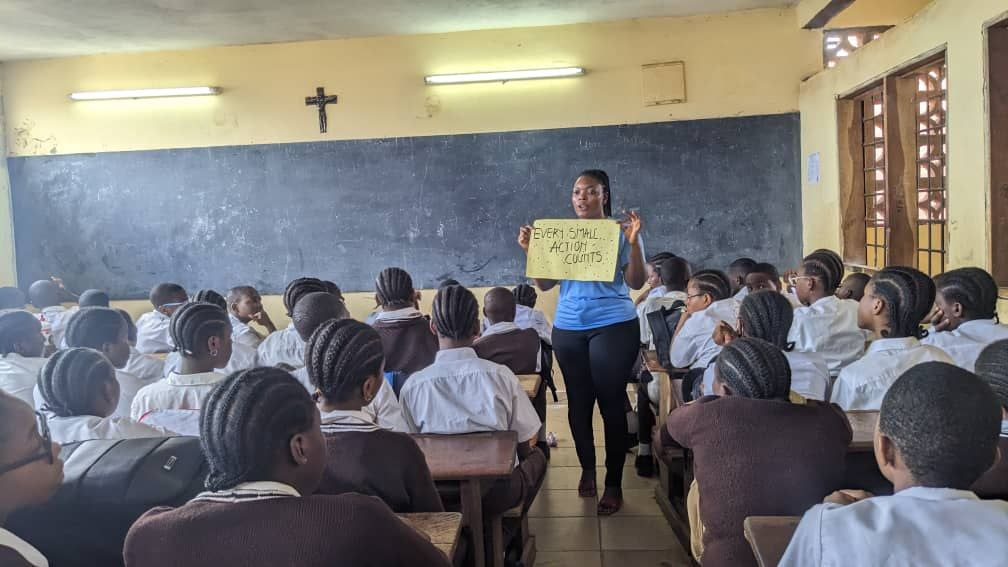 EVERY SMALL
ACTION
COUNTS